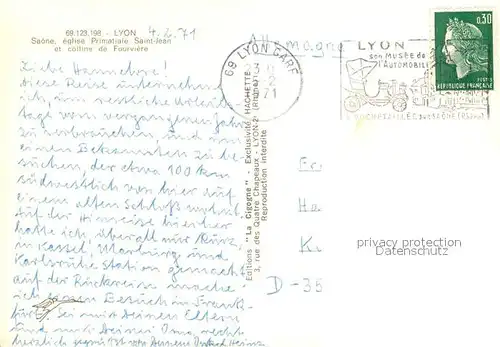 69.123.198 - LYON
Saône, église Primatiale Saint-Jean
et colline de Fourvière
4.2.71
Liebe Hannelore!
Diese Reise unternehme
ich, um restliche Urlaubs-
tage vom vergangenen Jahr
zu verbrauchen, und um
einen Bekannten zu be-
suchen, der etwa 100 km
südwestlich von hier auf
einem alten Schloß wohnt.
Auf der Hinreise hierher
hatte ich überall nur kurz
in Kassel, Marburg und
Karlsruhe Station gemacht
auf der Rückreise mache
ich einen Besuch in Frank-
furt. Sei mit Deinen Eltern
und mit Deiner Oma recht
herzlich gegrüßt von Deinem Onkel Heinz
Editions "La Cigogne" - Exclusivité HACHETTE
3, rue des Quatre Chapeaux - LYON-2e (Rhône)
Reproduction interdite
69 LYON GARE
2
1971
LYON
son MUSÉE de
l'AUTOMOBILE
0,30
POSTES
REPUBLIQUE FRANÇAISE
Fr.
Ha
K
D-35
privacy protection
Datenschutz